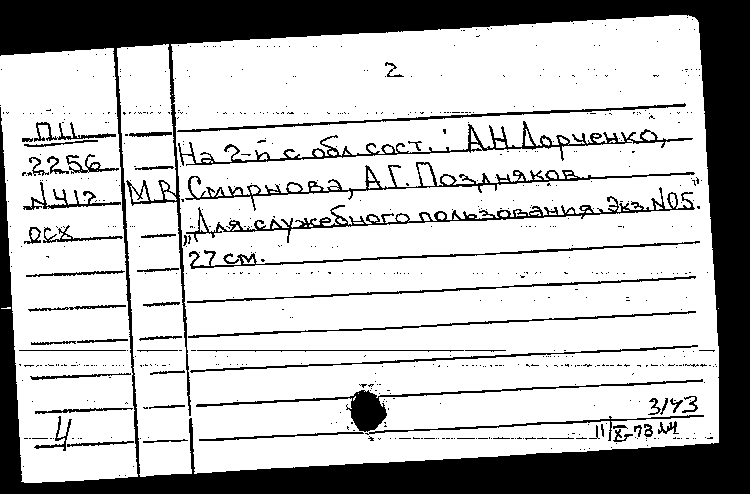 2
ПП
2256
N412
осх
На 2-й с. обл. сост.: А.Н. Дорченко,
М.R. Смирнова, А.Г. Поздняков.
„Для служебного пользования. Экз. N05."
27 см.
4
3/73
11/X-73